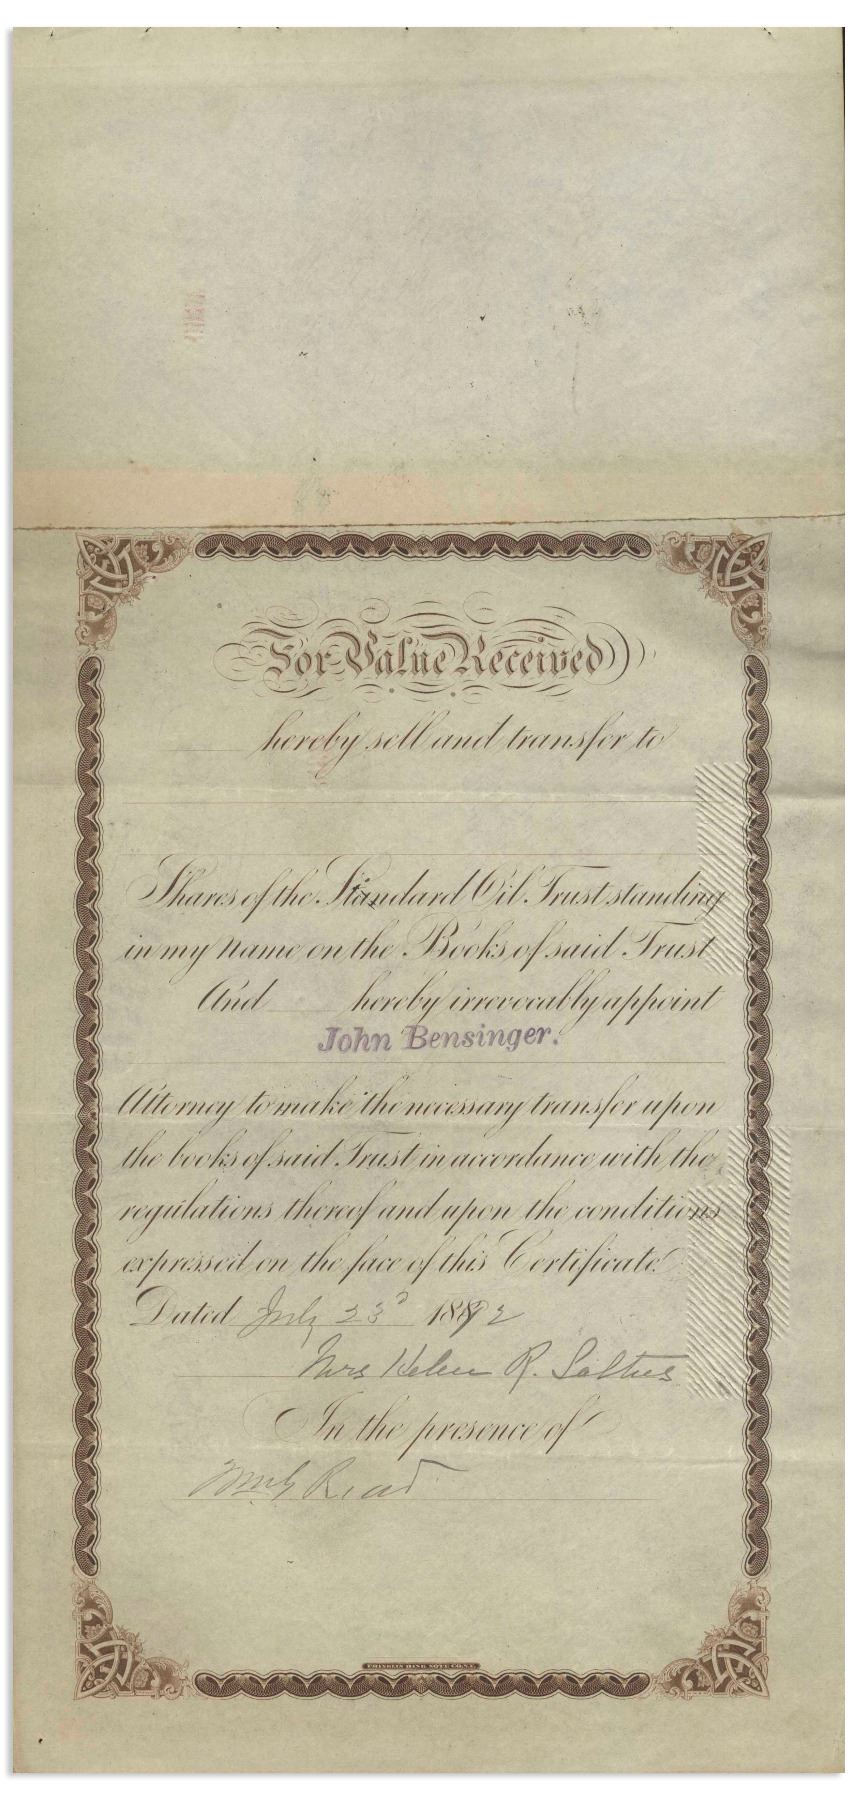 For Value Received
hereby sell and transfer to
Shares of the Standard Oil Trust standing
in my name on the Books of said Trust
And hereby irrevocably appoint
John Bensinger.
Attorney to make the necessary transfer upon
the books of said Trust in accordance with the
regulations thereof and upon the conditions
expressed on the face of this Certificate
Dated July 23d 1892
Mrs Helen R. Saltus
In the presence of
Read
FRANKLIN BANK NOTE CO. N.Y.